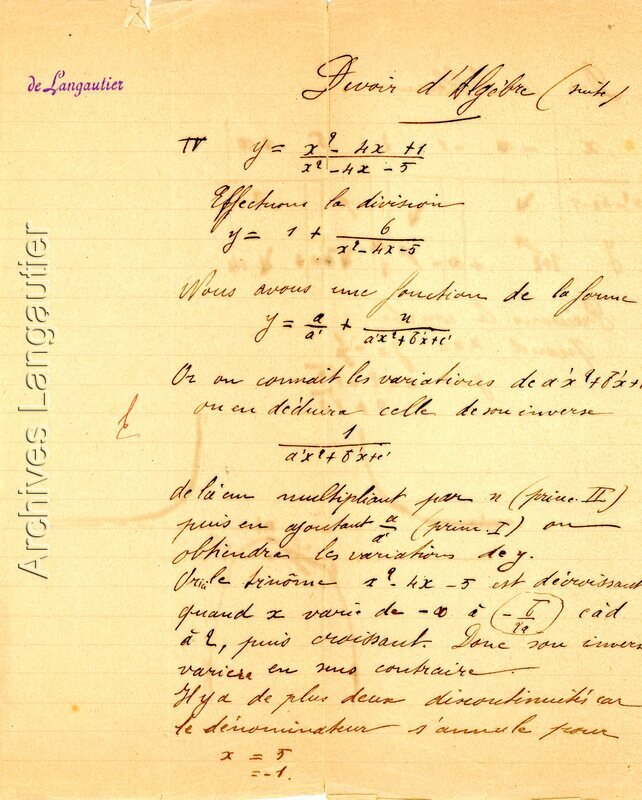 de Langautier
Devoir d'Algèbre (suite)
IV y = x² - 4x + 1 / x² - 4x - 5
Effectuons la division
y = 1 + 6 / x² - 4x - 5
Nous avons une fonction de la forme
y = a/a' + n / a'x² + b'x + c'
Or on connait les variations de a'x² + b'x +
on en déduira celle de son inverse
1 / a'x² + b'x + c'
de là en multipliant par n (princ. II)
puis en ajoutant a/a' (princ. I) on
obtiendra les variations de y.
le trinôme x² - 4x - 5 est décroissant
quand x varie de -∞ à - b/2a càd
à 2, puis croissant. Donc son invers
variera en sens contraire.
Il y a de plus deux discontinuités car
le dénominateur s'annule pour
x = 5
= -1.
Archives Langautier